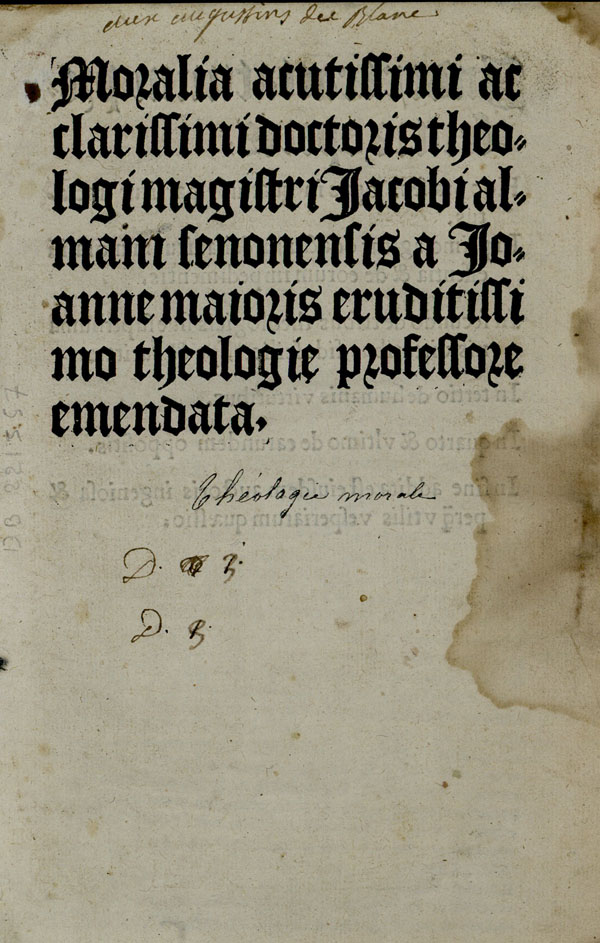 aux augustins del Blanc
Moralia acutissimi ac
clarissimi doctoris theo-
logi magistri Jacobi al-
maini senonensis a Jo-
anne maioris eruditissi
mo theologię professore
emendata.
Théologie morale
D. 3.
D. 3.